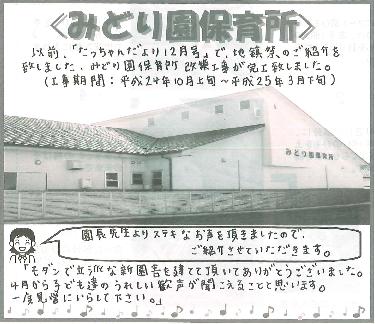 ≪みどり園保育所≫
以前、「たっちゃんだより12月号」で、地鎮祭のご紹介を
致しました、みどり園保育所 改築工事が完工致しました。
(工事期間：平成24年10月上旬～平成25年3月下旬)
みどり園保育所
園長先生よりステキなお声を頂きましたので、
ご紹介させていただきます。
「モダンで立派な新園舎を建てて頂いてありがとうございました。
4月から子ども達のうれしい歓声が聞こえることと思います。
一度見学にいらして下さい。」